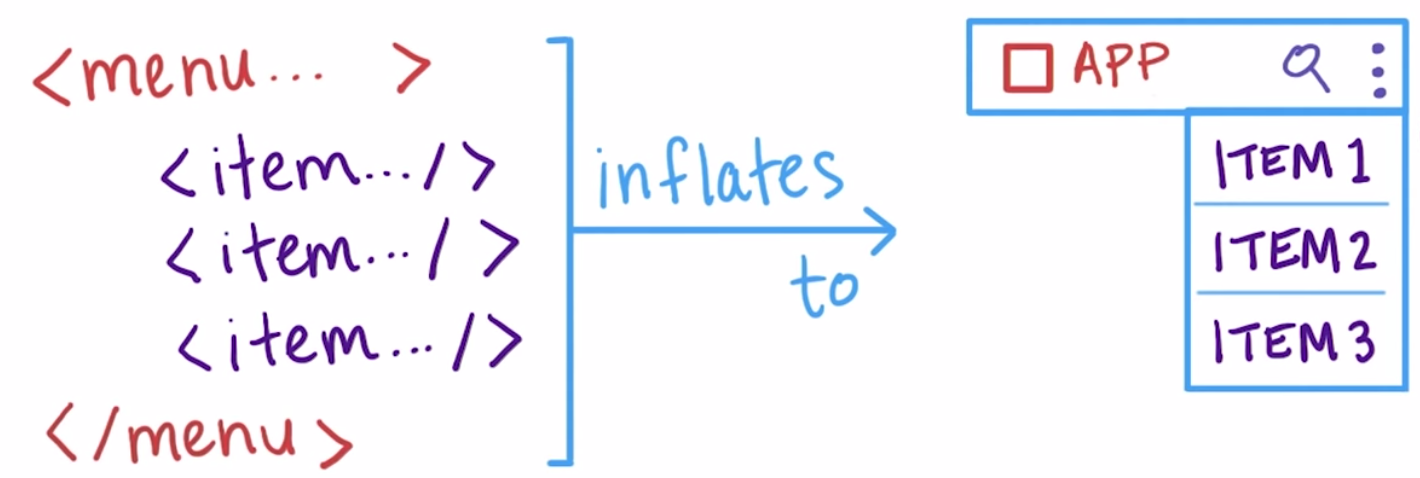 <menu... >
<item.../>
<item.../>
<item.../>
</menu>
inflates
to
APP
ITEM 1
ITEM 2
ITEM 3